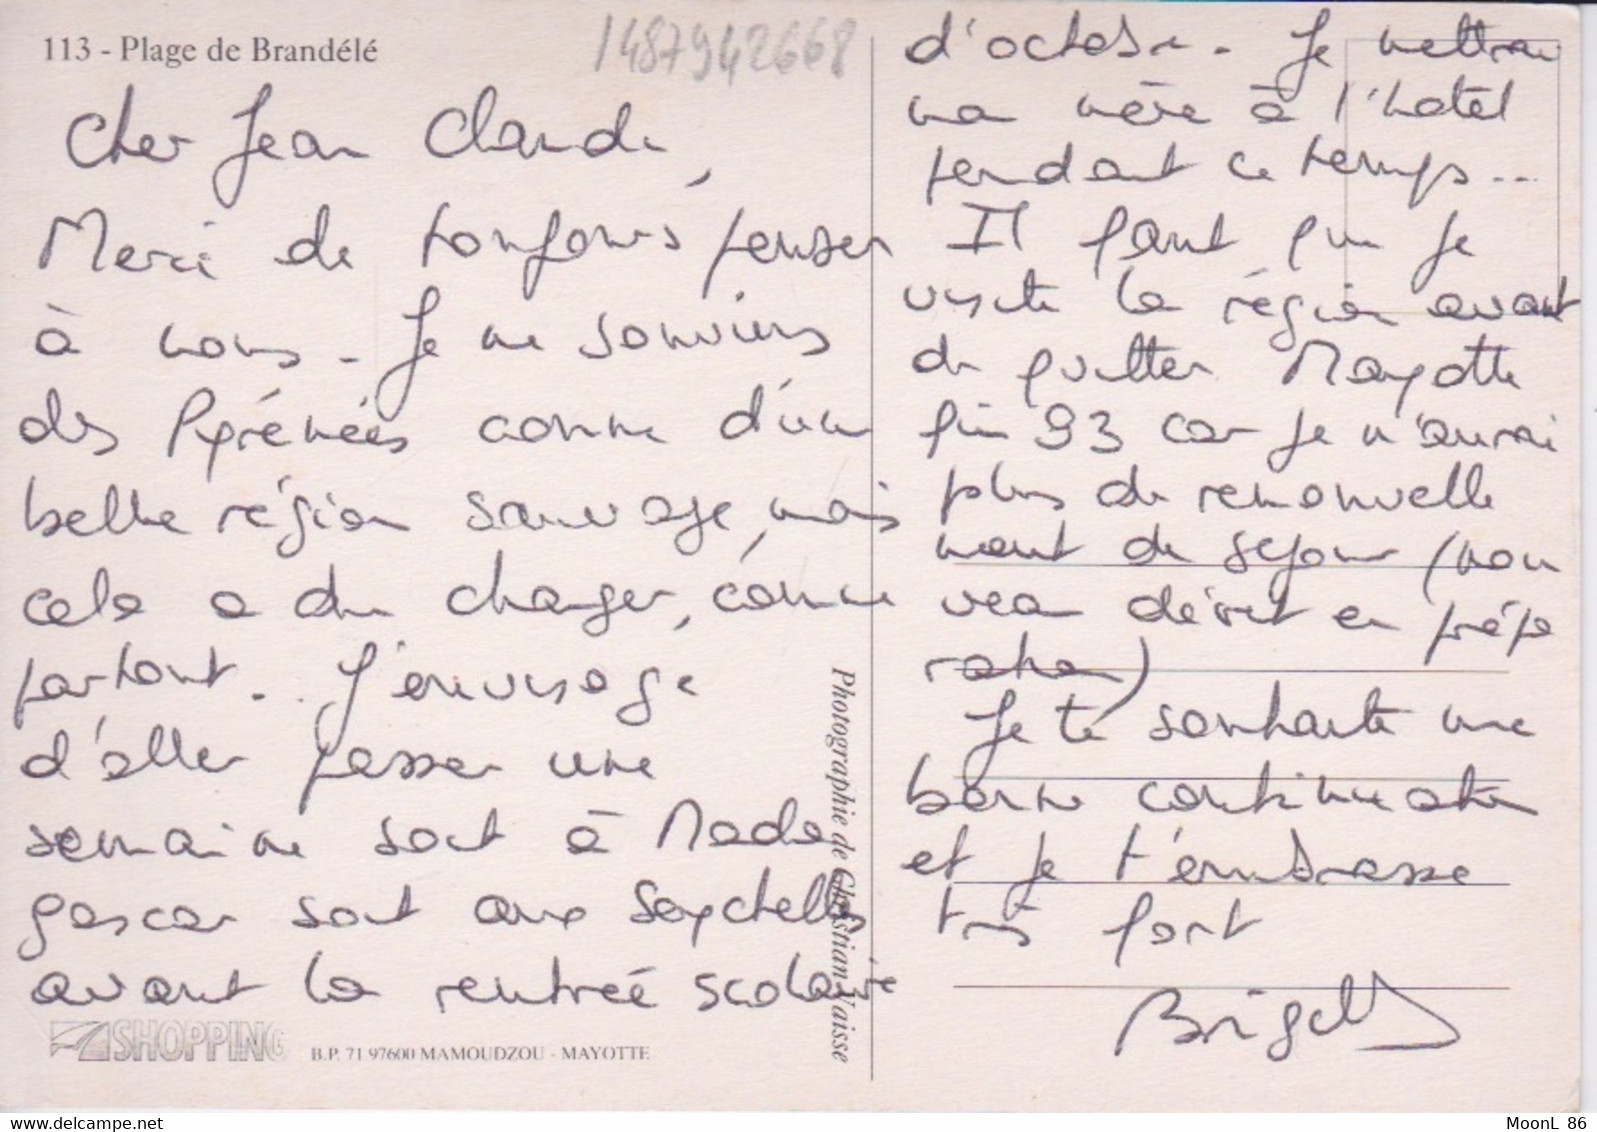 113 - Plage de Brandélé
1487942668
Cher Jean Claude,
Merci de toujours penser
à nous. Je me souviens
des Pyrénées comme d'une
belle région sauvage, mais
cela a du changer, comme
partout... J'envisage
d'aller passer une
semaine soit à Mada
gascar soit aux Seychelles
avant la rentrée scolaire
d'octobre. Je mettrai
ma mère à l'hotel
pendant ce temps...
Il faut que je
visite la région avant
de quitter Mayotte
fin 93 car je n'aurai
plus de renouvelle
ment de séjour (nou
veau décret en prépa
ration)
Je te souhaite une
bonne continuation
et je t'embrasse
très fort
Photographie de Christian Vaisse
SHOPPING
B.P. 71 97600 MAMOUDZOU - MAYOTTE
MoonL 86